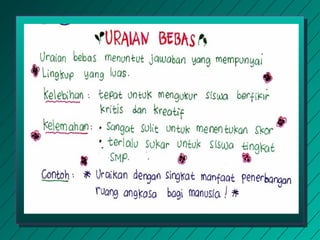 URAIAN BEBAS
Uraian bebas menuntut jawaban yang mempunyai
Lingkup yang luas.
Kelebihan : tepat untuk mengukur siswa berfikir
kritis dan kreatif
Kelemahan : • Sangat sulit untuk menentukan skor
• terlalu sukar untuk siswa tingkat
SMP.
Contoh : * Uraikan dengan singkat manfaat penerbangan
ruang angkasa bagi manusia ! *